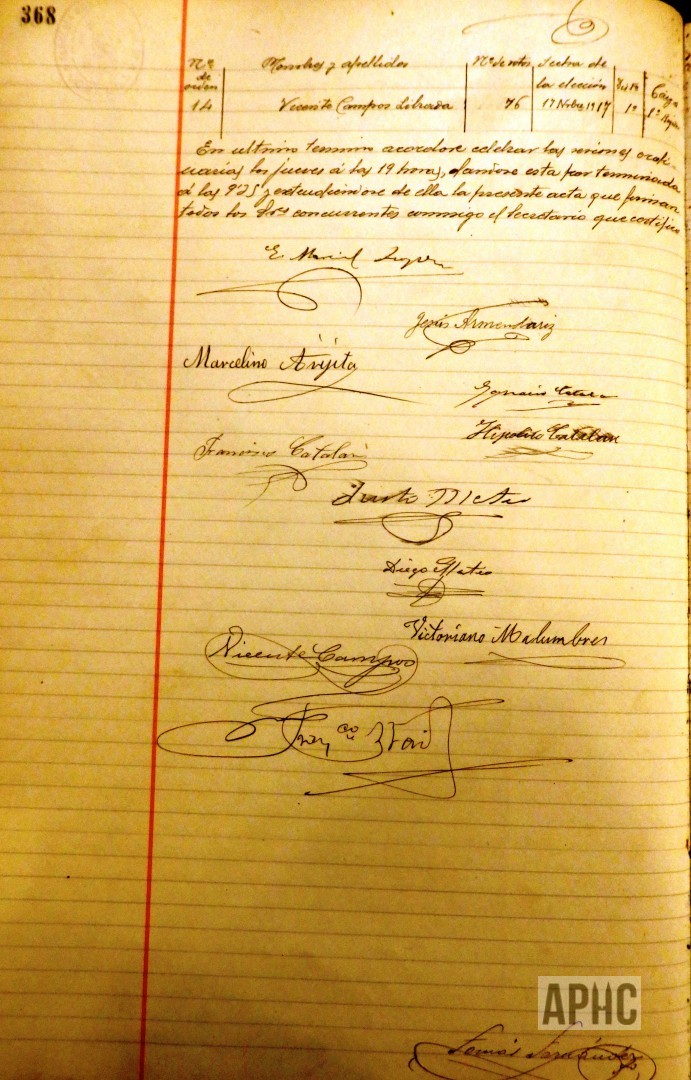 368
Nº de orden | Nombres y apellidos | Nº de votos | Fecha de la elección | Cargo
14 | Vicente Campos Librada | 76 | 17 Nobre 1917 | 1º
En ultimo termino acordose celebrar las sesiones ordi-
narias los jueves á las 19 horas, dandose esta por terminada
á las 9'25 y extendiendose de ella la presente acta que firman
todos los Sres concurrentes conmigo el Secretario que certifico
E. Marcial
Jesús Armendariz
Marcelino Arifita
Ignacio
Hipolito Catalan
Francisco Catalan
Justo Mateo
Diego Mateo
Victoriano Malumbres
Vicente Campos
Franco
APHC
Tomás